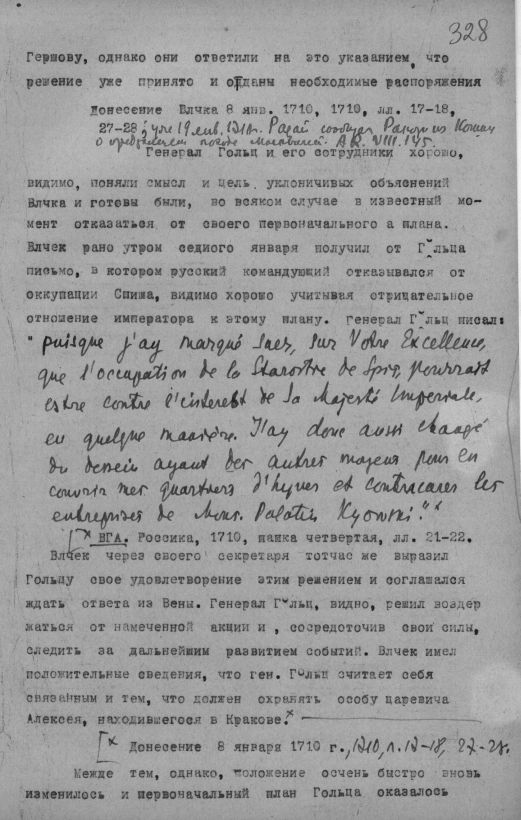 328
Гершову, однако они ответили на это указанием, что
решение уже принято и отданы необходимые распоряжения
Донесение Влчка 8 янв. 1710, 1710, лл. 17-18,
27-28; уже 19 янв. 1710г. Радай
о походе AR. VIII. 145.
Генерал Гольц и его сотрудники хорошо,
видимо, поняли смысл и цель уклончивых объяснений
Влчка и готовы были, во всяком случае в известный мо-
мент отказаться от своего первоначального а плана.
Влчек рано утром седиого января получил от Гольца
письмо, в котором русский командующий отказывался от
оккупации Спиша, видимо хорошо учитывая отрицательное
отношение императора к этому плану. генерал Гольц писал:
"puisque j'ay marqué hier, sur Votre Excellence,
que l'occupation de la Starostie de Spis, pourrait
estre contre l'interest de Sa Majesté Imperiale,
en quelque manière. J'ay donc aussi changé
du dessein ayant des autres moyens pour en
couvrir mes quartiers d'hyver et contrecarer les
entreprises de Mons. Palatin Kyowski."x
[x ВГА. Россика, 1710, папка четвертая, лл. 21-22.
Влчек через своего секретаря тотчас же выразил
Гольцу свое удовлетворение этим решением и соглашался
ждать ответа из Вены. Генерал Гольц, видно, решил воздер
жаться от намеченной акции и , сосредоточив свои силы,
следить за дальнейшим развитием событий. Влчек имел
положительные сведения, что ген. Гольц считает себя
связанным и тем, что должен охранять особу царевича
Алексея, находившегося в Кракове.x
[x Донесение 8 января 1710 г., 1710, л. 17-18, 27-28.
Межде тем, однако, положение осчень быстро вновь
изменилось и первоначальный план Гольца оказалось